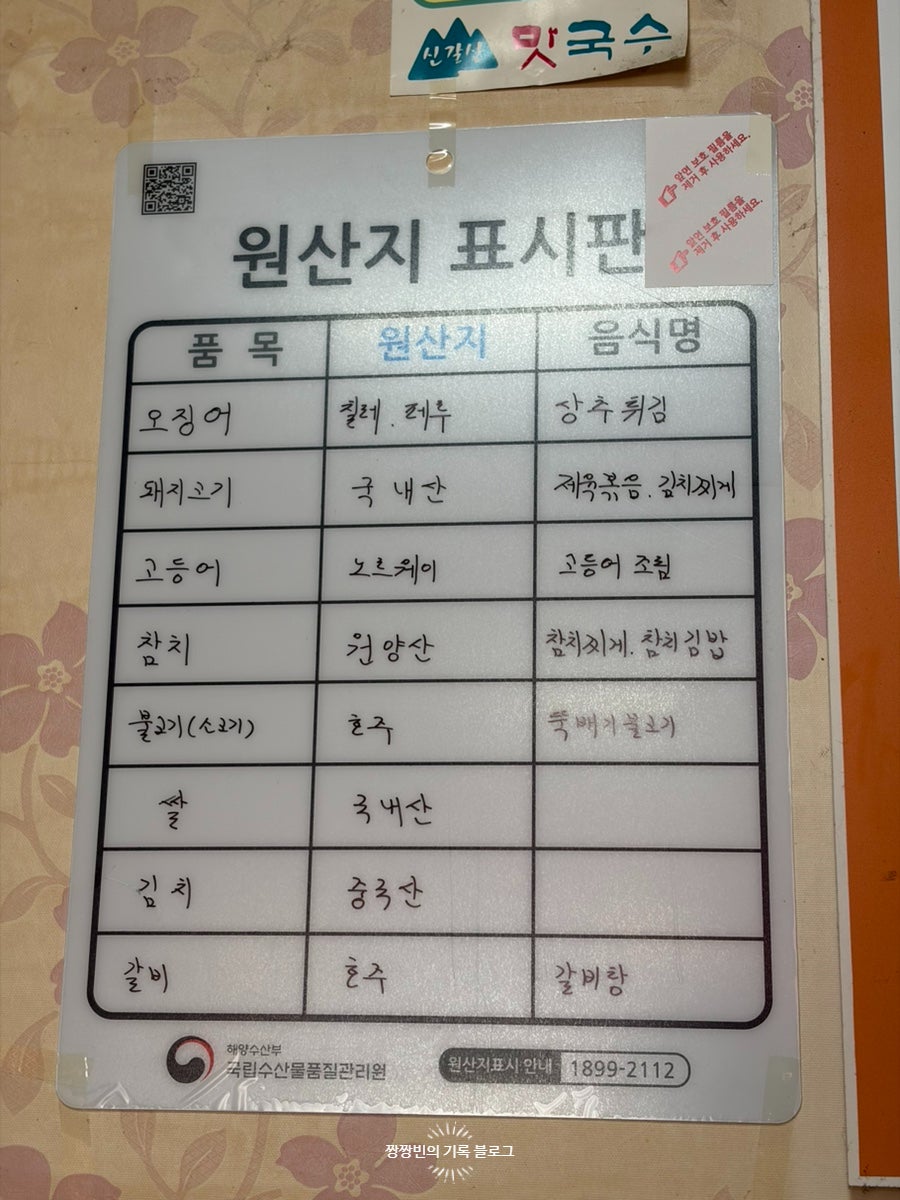 신갈산 맛국수
앞면 보호 필름을
제거 후 사용하세요.
앞면 보호 필름을
제거 후 사용하세요.
원산지 표시판
품 목 원산지 음식명
오징어 칠레. 페루 상추튀김
돼지고기 국내산 제육볶음. 김치찌게
고등어 노르웨이 고등어 조림
참치 원양산 참치찌게. 참치김밥
불고기(소고기) 호주 뚝배기불고기
쌀 국내산
김치 중국산
갈비 호주 갈비탕
해양수산부
국립수산물품질관리원
원산지표시 안내 1899-2112
짱짱빈의 기록 블로그